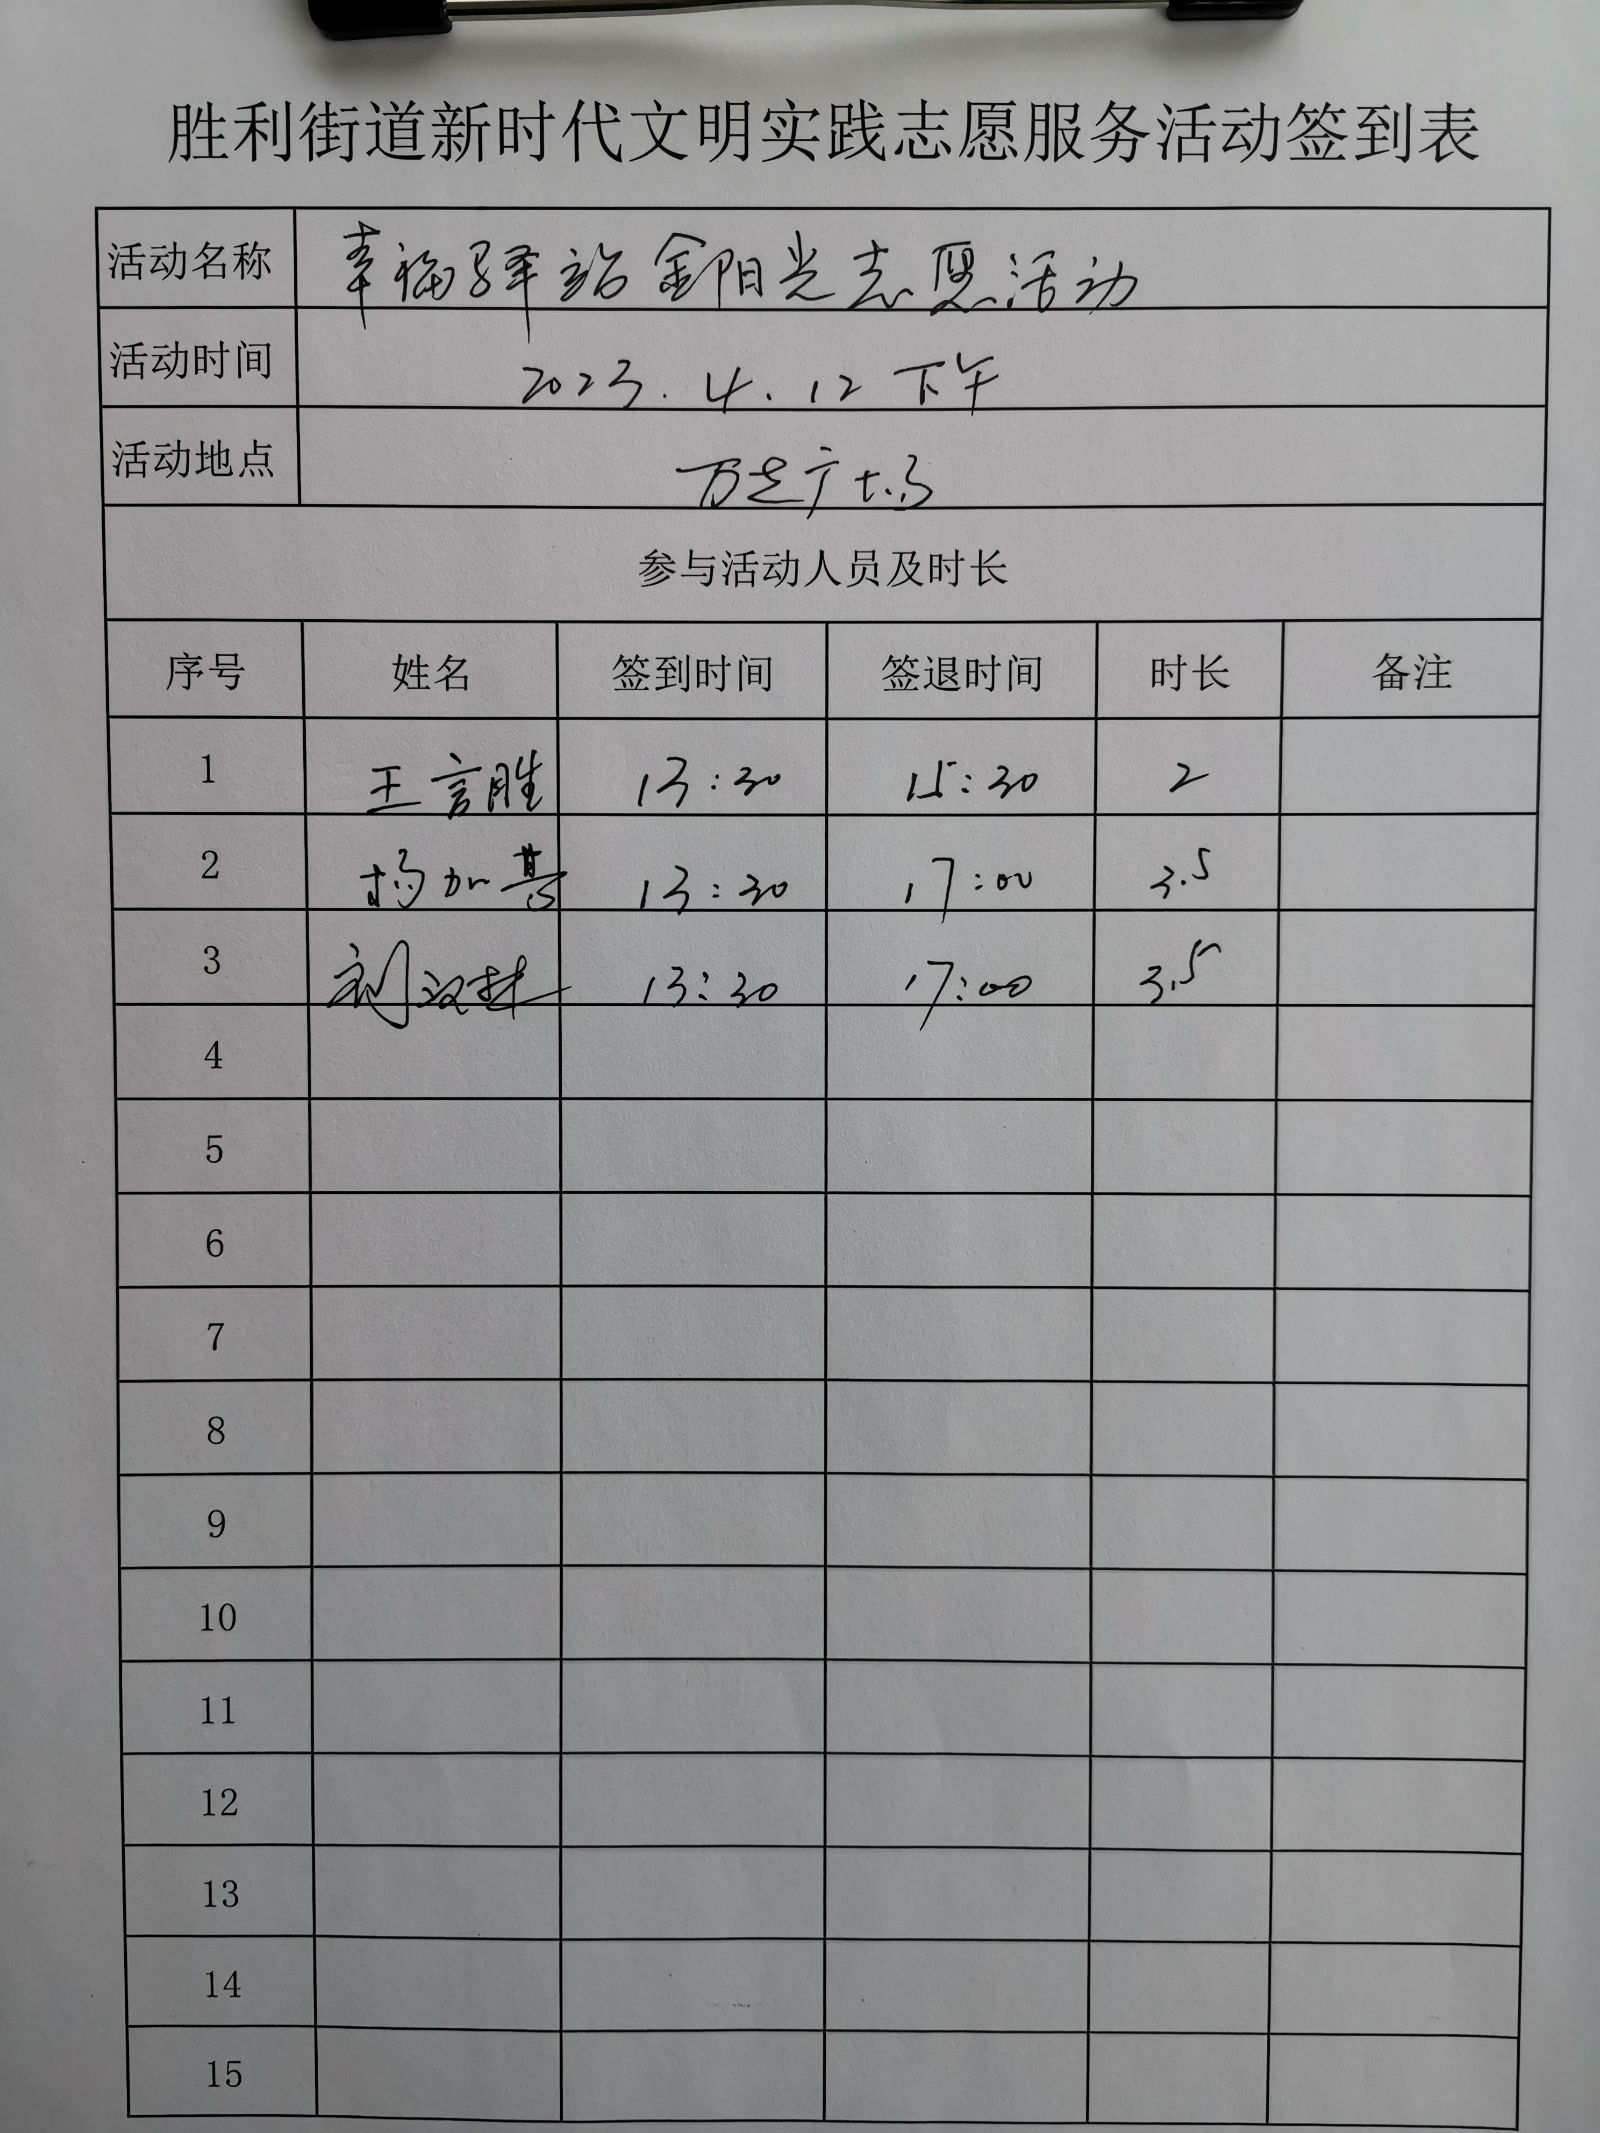 胜利街道新时代文明实践志愿服务活动签到表
活动名称 幸福驿站金阳光志愿活动
活动时间 2023.4.12 下午
活动地点 万达广场
参与活动人员及时长
序号 姓名 签到时间 签退时间 时长 备注
1 王言胜 13:30 15:30 2
2 杨加 13:30 17:00 3.5
3 刘汉林 13:30 17:00 3.5
4
5
6
7
8
9
10
11
12
13
14
15